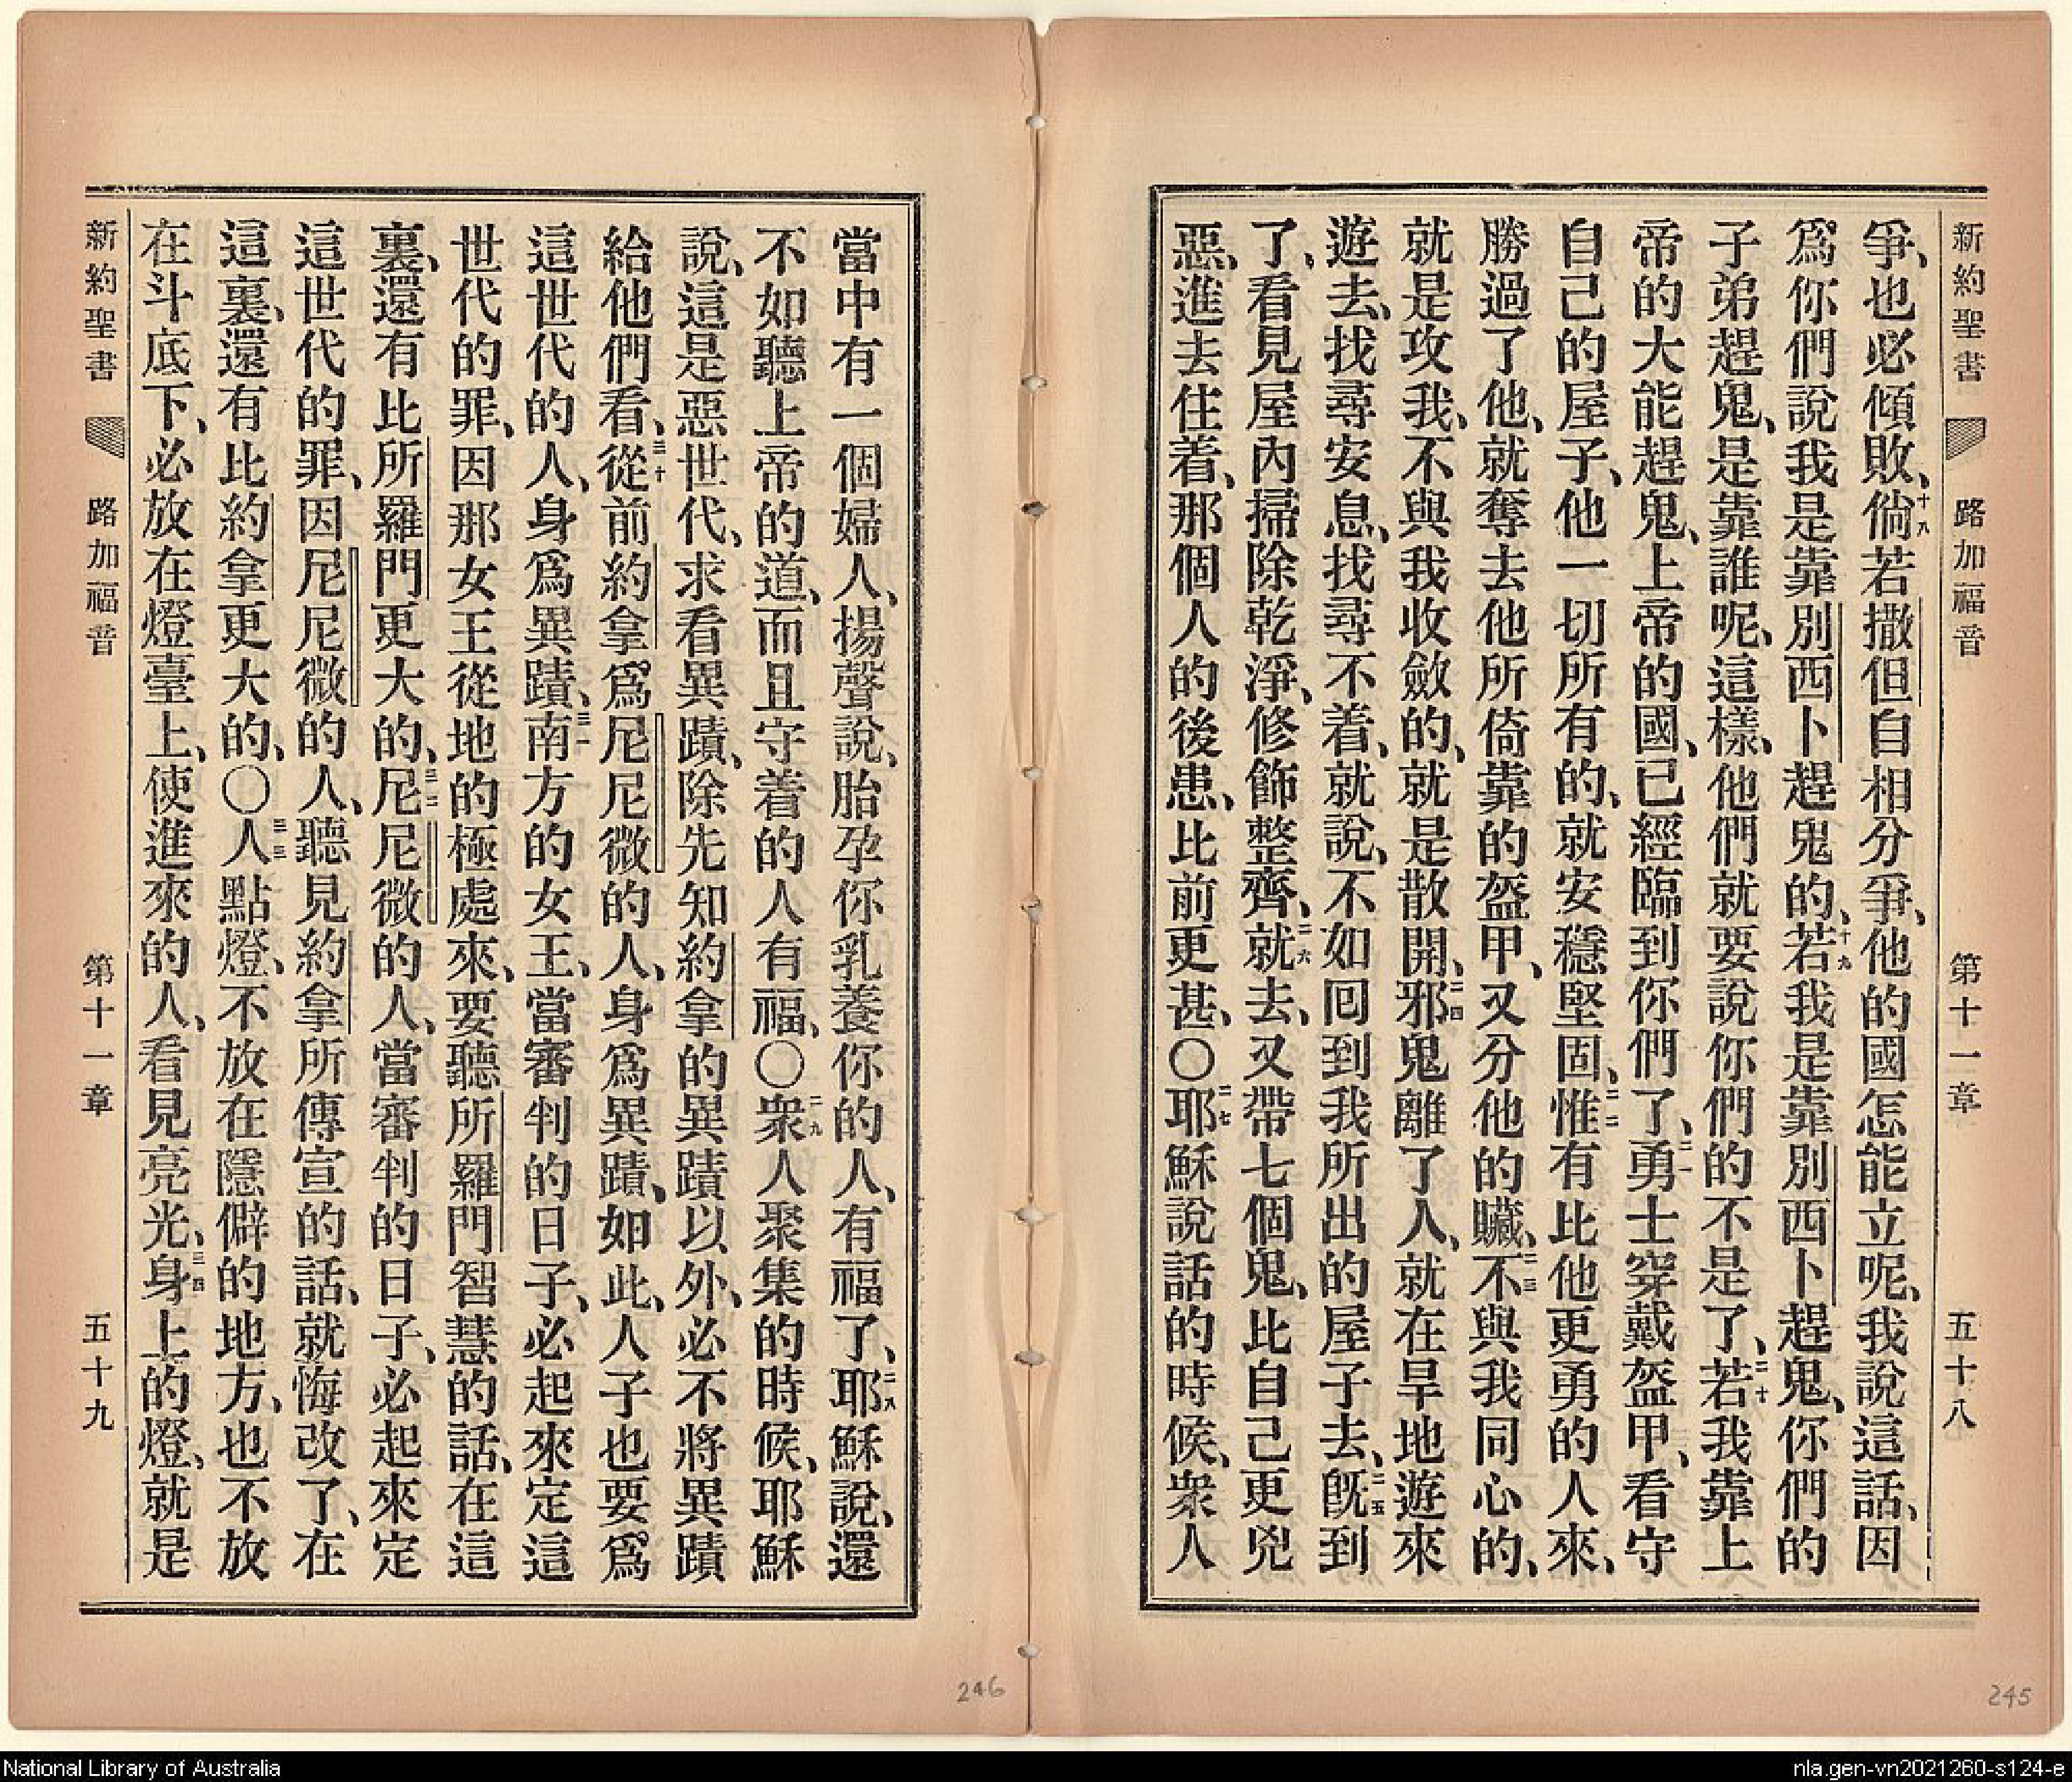 新約聖書 路加福音 第十一章 五十八
爭、也必傾敗、十八倘若撒但自相分爭、他的國怎能立呢、我說這話、因
爲你們說我是靠別西卜趕鬼的、十九若我是靠別西卜趕鬼、你們的
子弟趕鬼、是靠誰呢、這樣、他們就要說你們的不是了、二十若我靠上
帝的大能趕鬼、上帝的國、已經臨到你們了、二一勇士穿戴盔甲、看守
自己的屋子、他一切所有的、就安穩堅固、二二惟有比他更勇的人來、
勝過了他、就奪去他所倚靠的盔甲、又分他的贓、二三不與我同心的、
就是攻我、不與我收斂的、就是散開、二四邪鬼離了人、就在旱地遊來
遊去、找尋安息、找尋不着、就說、不如回到我所出的屋子去、二五旣到
了、看見屋內掃除乾淨、修飾整齊、二六就去、又帶七個鬼、比自己更兇
惡、進去住着、那個人的後患、比前更甚、〇二七耶穌說話的時候、衆人
當中有一個婦人、揚聲說、胎孕你乳養你的人、有福了、二八耶穌說、還
不如聽上帝的道、而且守着的人有福、〇二九衆人聚集的時候、耶穌
說、這是惡世代、求看異蹟、除先知約拿的異蹟以外、必不將異蹟
給他們看、三十從前約拿爲尼尼微的人、身爲異蹟、如此、人子也要爲
這世代的人、身爲異蹟、三一南方的女王、當審判的日子、必起來定這
世代的罪、因那女王從地的極處來、要聽所羅門智慧的話、在這
裏、還有比所羅門更大的、三二尼尼微的人、當審判的日子、必起來定
這世代的罪、因尼尼微的人、聽見約拿所傳宣的話、就悔改了、在
這裏、還有比約拿更大的、〇三三人點燈、不放在隱僻的地方、也不放
在斗底下、必放在燈臺上、使進來的人、看見亮光、三四身上的燈、就是
新約聖書 路加福音 第十一章 五十九
246
245
National Library of Australia
nla.gen-vn2021260-s124-e